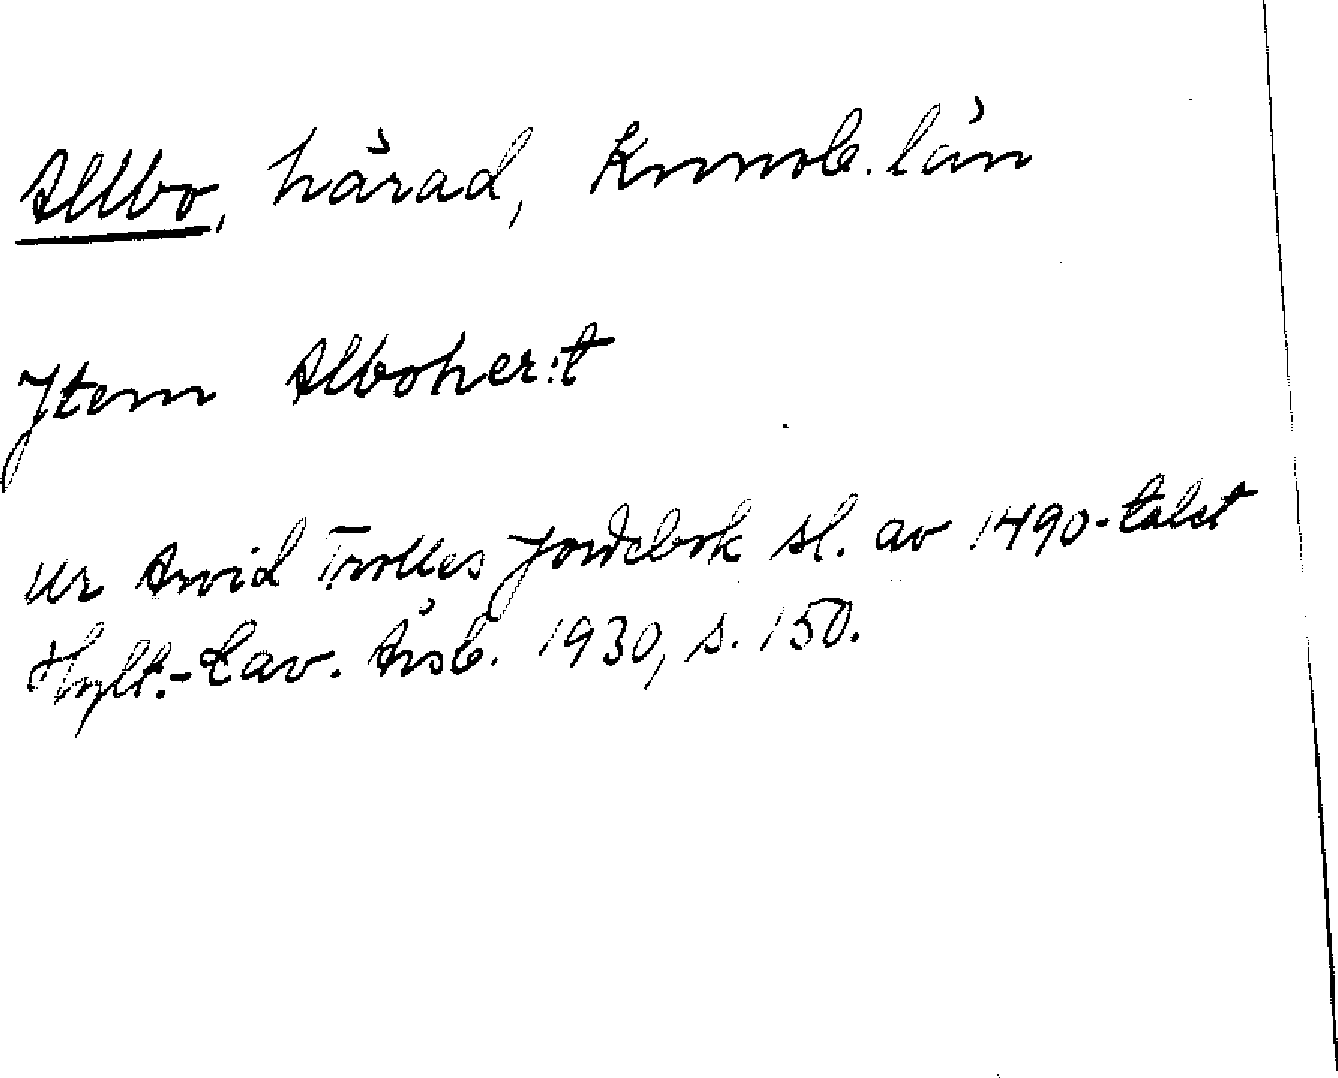 Allbo, härad, Kronob. län
Item Alboher:t
Ur Arvid Trolles Jordebok sl. av 1490-talet
Hylt.-Cav. Årsb. 1930, s. 150.